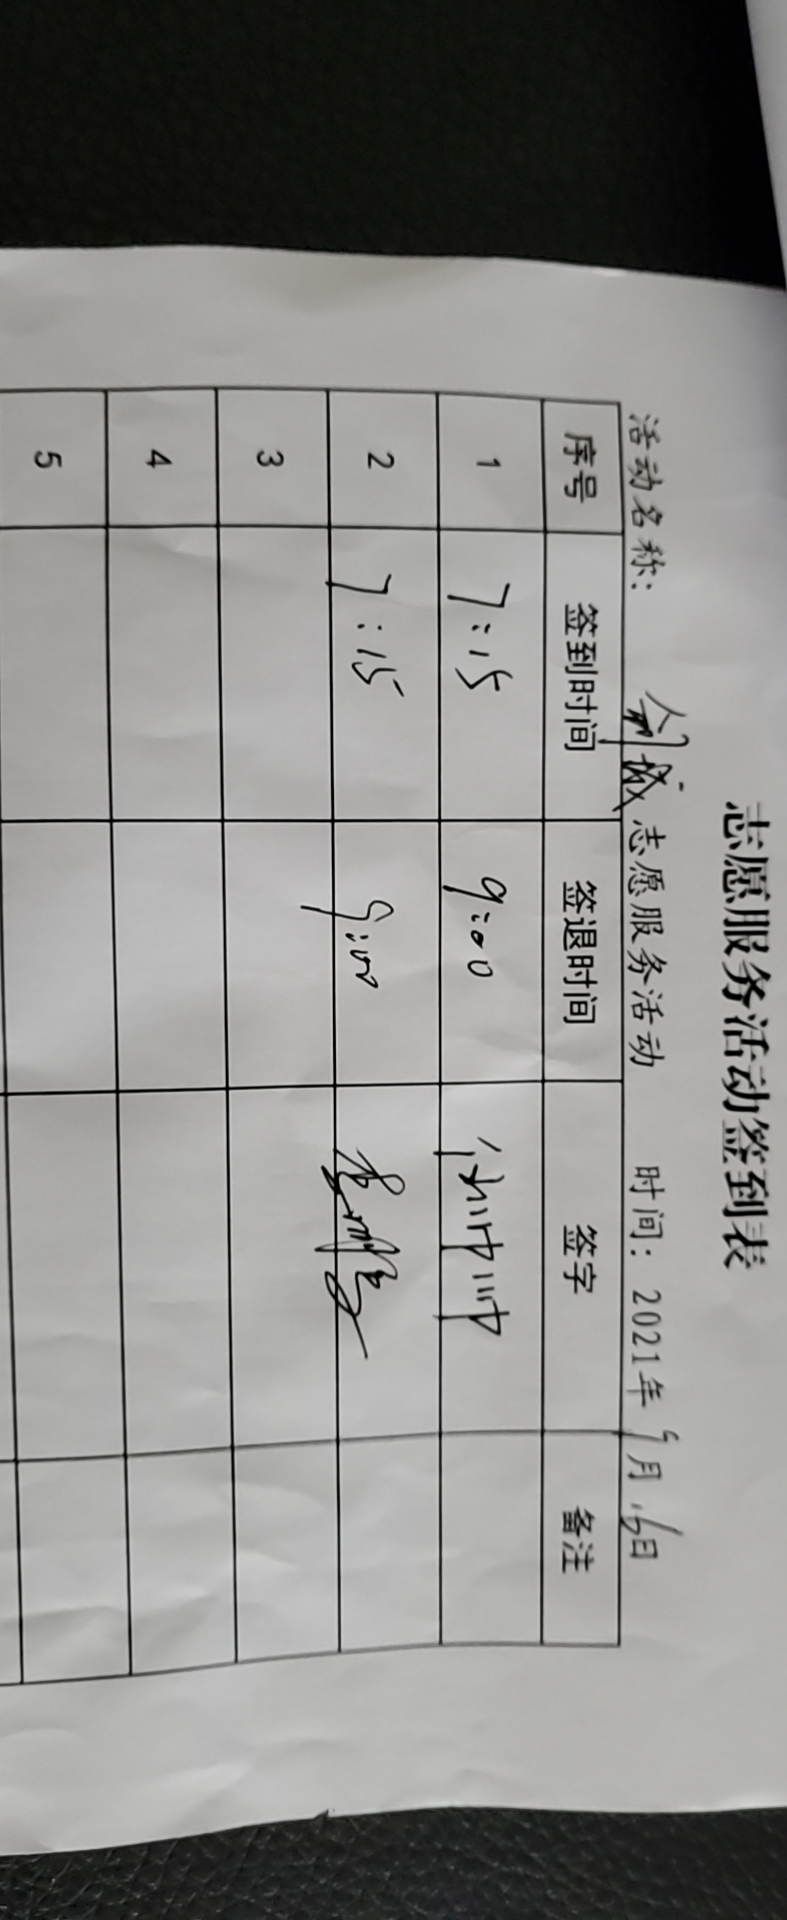 志愿服务活动签到表
活动名称: 创城志愿服务活动 时间: 2021年9月15日
序号 签到时间 签退时间 签字 备注
1 7:15 9:00
2 7:15 9:00
3
4
5